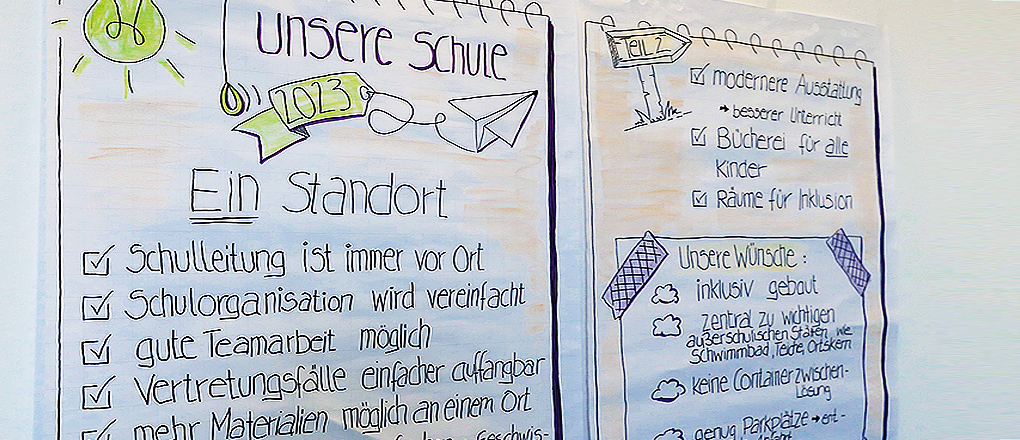 Unsere Schule
2023
Ein Standort
Schulleitung ist immer vor Ort
Schulorganisation wird vereinfacht
gute Teamarbeit möglich
Vertretungsfälle einfacher auffangbar
mehr Materialien möglich an einem Ort
Geschwis-
Teil 2
modernere Ausstattung
→ besserer Unterricht
Bücherei für alle
Kinder
Räume für Inklusion
Unsere Wünsche:
inklusiv gebaut
zentral zu wichtigen
außerschulischen Stätten, wie
Schwimmbad, Teiche, Ortskern
keine Containerzwischen-
lösung
genug Parkplätze → ent-